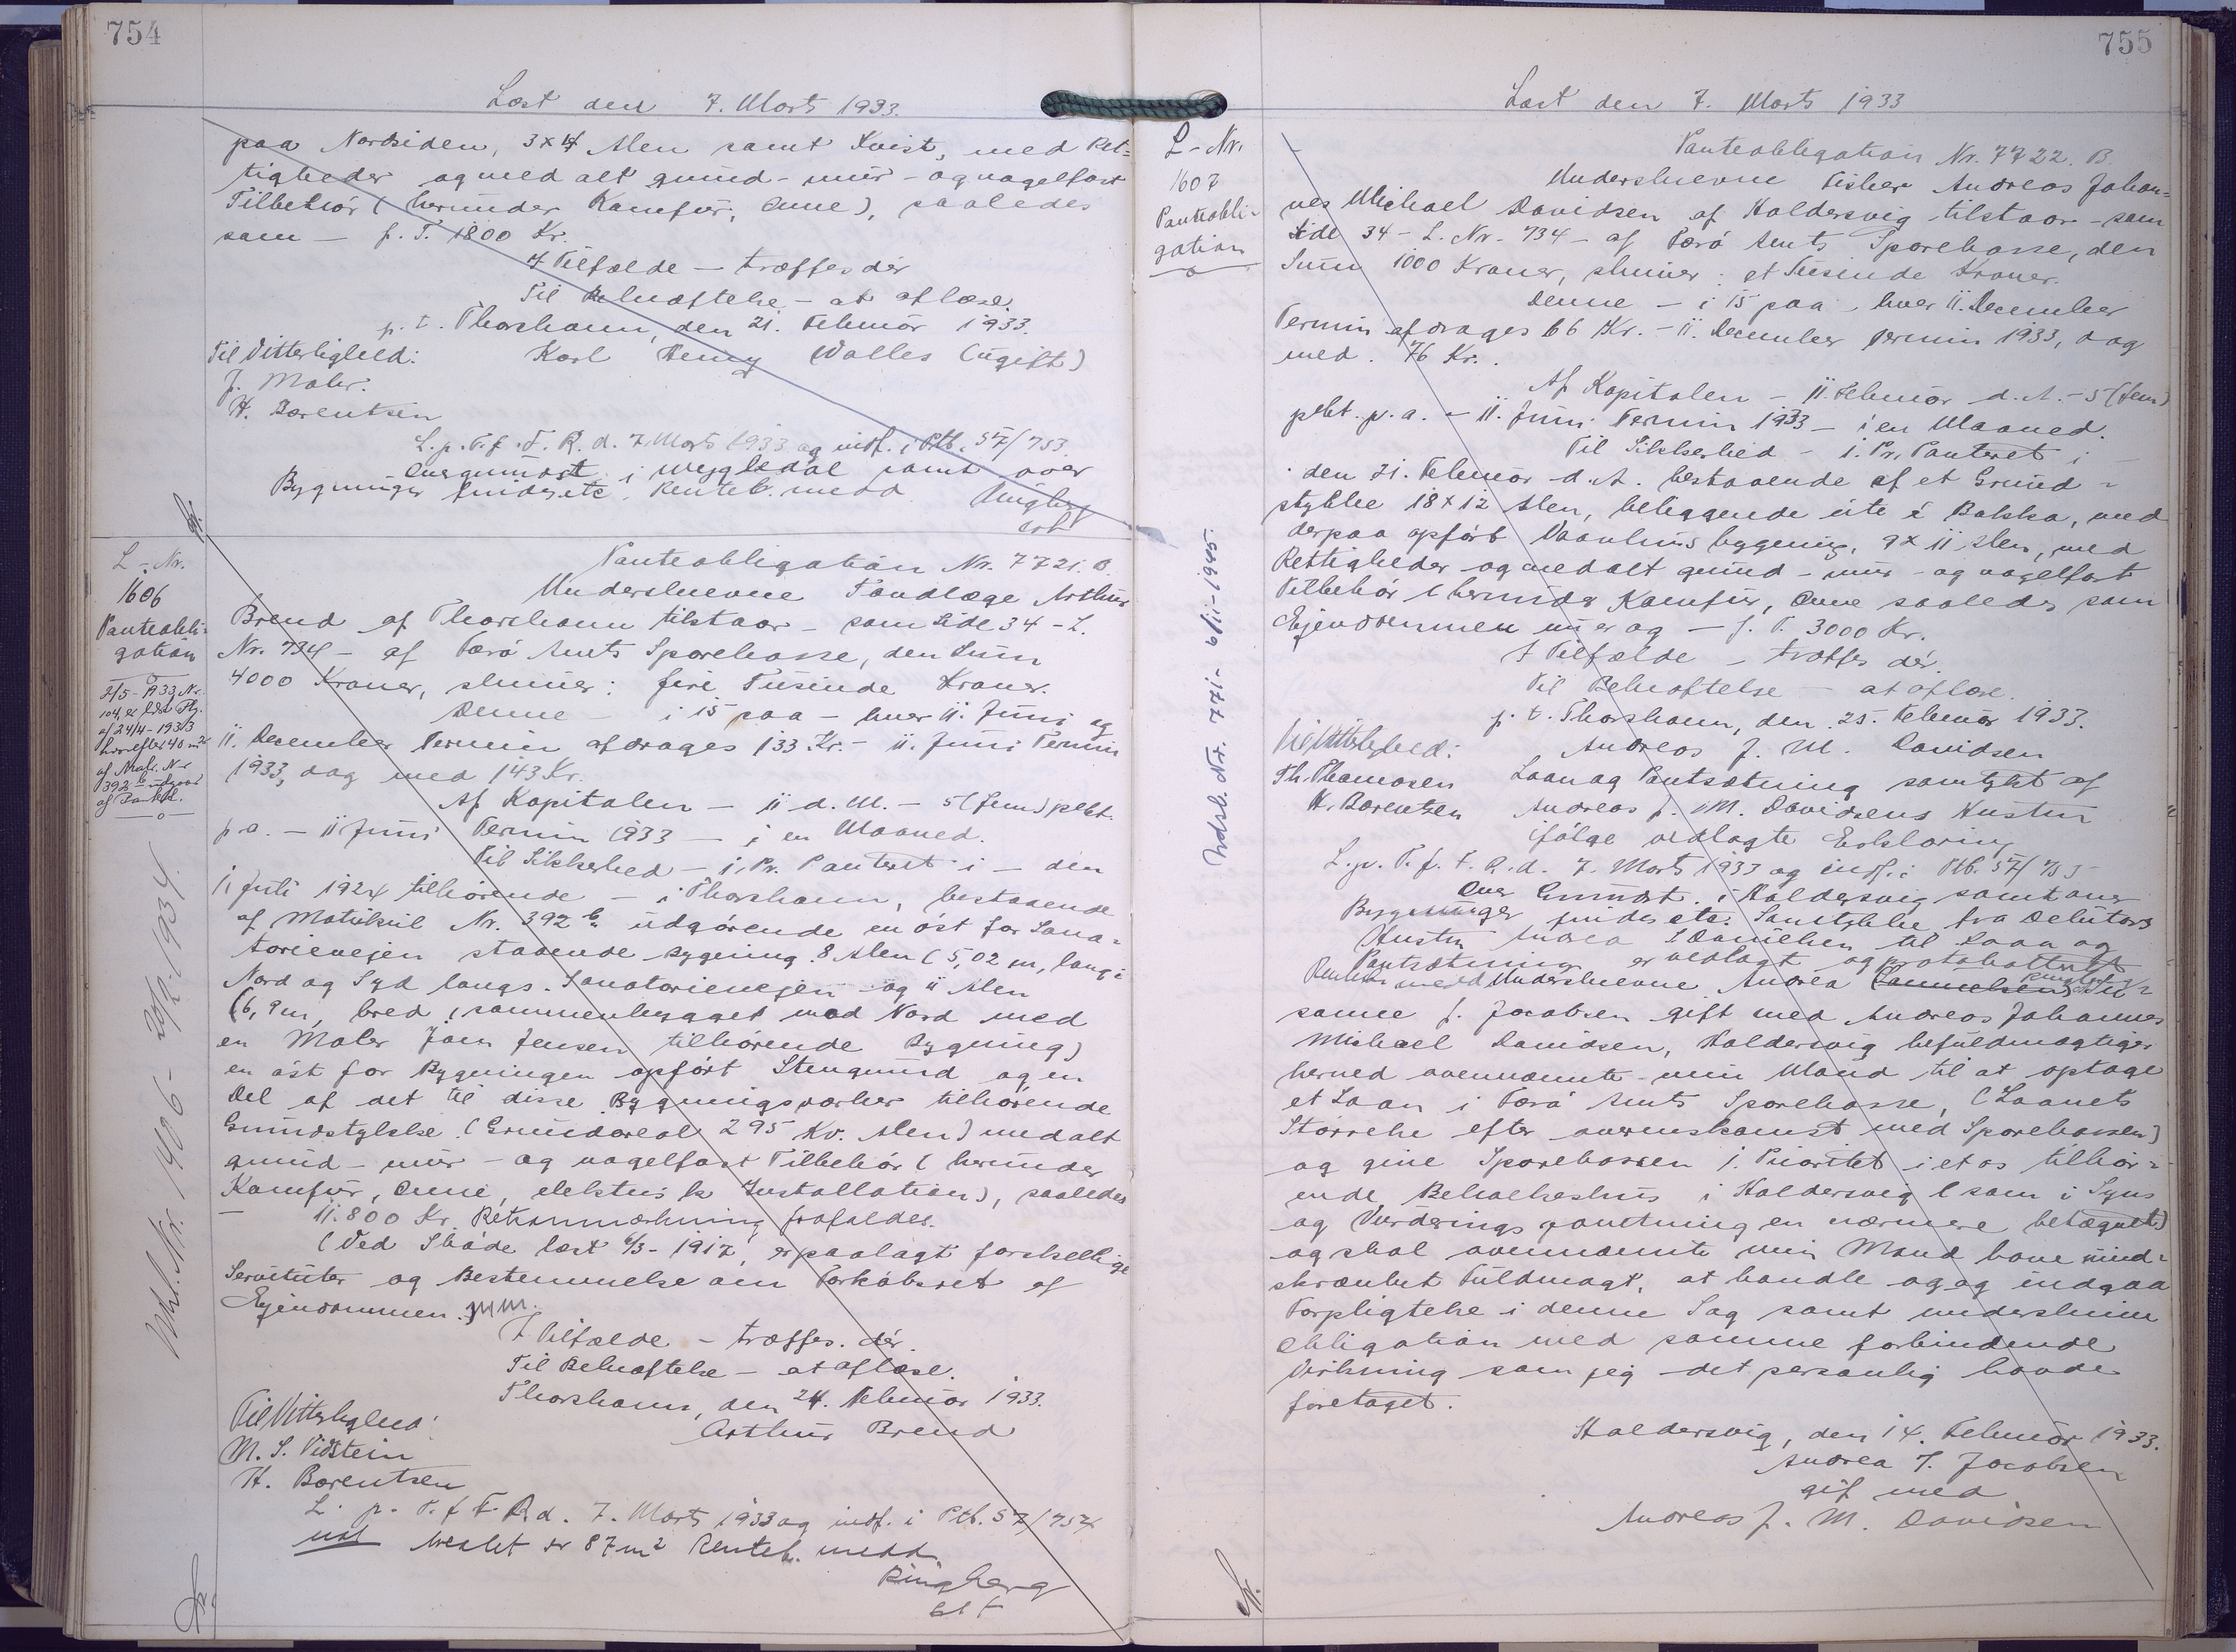 754
Læst den 7. Marts 1933.
paa Nordsiden, 3 x 4 Alen samt Kvist, med Ret=
tigheder og med alt grund- mur- og nagelfast
Tilbehör (herunder Kamfur, Ovne), saaledes
som — f. T. 1800 Kr.
I Tilfælde — træffes dér
Til Bekræftelse — at aflæse.
p. t. Thorshavn, den 21. Februar 1933.
Til Vitterlighed: Karl Remy Valles (ugift)
J. Mohr.
H. Barentsen
L. p. T. f. F. R. d. 7. Marts 1933 og indf. i Ptb. 57/753.
over
Bygninger etc. Renteb. medd.
L-Nr.
1606
Panteobli=
gation
2/5-1933, Nr.
104, er
af 24/4-1933
hvorefter 40 m²
af Matr. Nr
392 b udgaar
af Pantet.
Panteobligation Nr. 7721. B.
Underskrevne Tandlæge Arthur
Brend af Thorshavn tilstaar — som Side 34 - L.
Nr. 734 — af Færö Amts Sparekasse, den Sum
4000 Kroner, skriver: fire Tusinde Kroner.
Denne — i 15 paa — hver 11. Juni og
11. December Termin afdrages 133 Kr. — 11. Juni Termin
1933, dog med 143 Kr.
Af Kapitalen — 11 d. M. — 5 (fem) pCt.
p. a. — 11 Juni Termin 1933 — i en Maaned.
Til Sikkerhed — 1. Pr. Panteret i — den
1. Juli 1924 tilhörende — i Thorshavn, bestaaende
af Matrikul Nr. 392 b. udgörende en öst for Sana=
torievejen staaende Bygning 8 Alen (5,02 m, lang i
Nord og Syd langs Sanatorievejen og 11 Alen
(6,9 m, bred, sammenbygget mod Nord med
en Maler Joen Jensen tilhörende Bygning)
en öst for Bygningen opfört Stengrund og en
Del af det til disse Bygningsværker tilhörende
Grundstykke (Grundareal 295 Kv. Alen) med alt
grund- mur- og nagelfast Tilbehör (herunder
Kamfur, Ovne, elektrisk Installation), saaledes
— 11.800 Kr. Retsanmærkning frafaldes.
(Ved Sköde læst 6/3-1917, er paalagt forskellige
Servituter og Bestemmelse om Forköbsret af
Ejendommen. mm.
I Tilfælde — træffes dér.
Til Bekræftelse — at aflæse.
Thorshavn, den 24. Februar 1933.
Til Vitterlighed: Arthur Brend
M. S. Viðstein
H. Barentsen
L. p. T. f. F. R. d. 7. Marts 1933 og indf. i Ptb. 57/754
er 87 m² Renteb. medd.
Ringberg
cst
Udsl. Nr. 1406 - 1934.
755
Læst den 7. Marts 1933
L-Nr.
1607
Panteobli-
gation
Udsl. Nr. 771 - 6/11-1945.
Panteobligation Nr. 7722. B.
Underskrevne Fisker Andreas Johan=
nes Michael Davidsen af Haldersvig tilstaar — som
Side 34 - L. Nr. 734 — af Færö Amts Sparekasse, den
Sum 1000 Kroner, skriver: et Tusinde Kroner.
Denne — i 15 paa — hver 11. December
Termin afdrages 66 Kr. — 11. December Termin 1933, dog
med 76 Kr.
Af Kapitalen — 11. Februar d. A. — 5 (fem)
pCt. p. a. — 11. Juni Termin 1933 — i en Maaned.
Til Sikkerhed — 1. Pr. Panteret i
den 21. Februar d. A. bestaaende af et Grund=
stykke 18 x 12 Alen, beliggende úte á Bakka, med
derpaa opfört Vaanhus bygning, 9 x 11 Alen, med
Rettigheder og med alt grund- mur- og nagelfast
Tilbehör (herunder Kamfur, Ovne saaledes som
Ejendommen nu er og — f. T. 3000 Kr.
I Tilfælde — træffes dér.
Til Bekræftelse — at aflæse.
p. t. Thorshavn, den 25. Februar 1933.
Til Vitterlighed: Andreas J. M. Davidsen
Th. Thomasen Laan og Pantsætning samtykt af
H. Barentsen Andreas J. M. Davidsens Hustru
ifölge vedlagte Erklæring
L. p. T. f. F. R. d. 7. Marts 1933 og indf. i Ptb. 57/755
over Grundst. i Haldersvig samt over
Bygninger etc. Samtykke fra Debitors
Hustru Andrea Danielsen til Laan og
Pantsætning er vedlagt og protokolleret
Renteb. medd Underskrevne Andrea
sanne f. Jacobsen gift med Andreas Johannes
Michael Davidsen, Haldersvig befuldmægtiger
herved ovennævnte min Mand til at optage
et Laan i Færö Amts Sparekasse, (Laanets
Störrelse efter overenskomst med Sparekassen)
og give Sparekassen 1. Prioritet i et os tilhör=
ende Beboelseshus i Haldersvig (som i Syns
og Vurderings forretning en nærmere betegnet)
og skal ovennævnte min Mand have uind=
skrænket Fuldmagt, at handle og og indgaa
Forpligtelse i denne Sag samt underskrive
Obligation med samme forbindende
Virkning som jeg det personlig havde
foretaget.
Haldersvig, den 14. Februar 1933.
Andrea T. Jacobsen
gift med
Andreas J. M. Davidsen